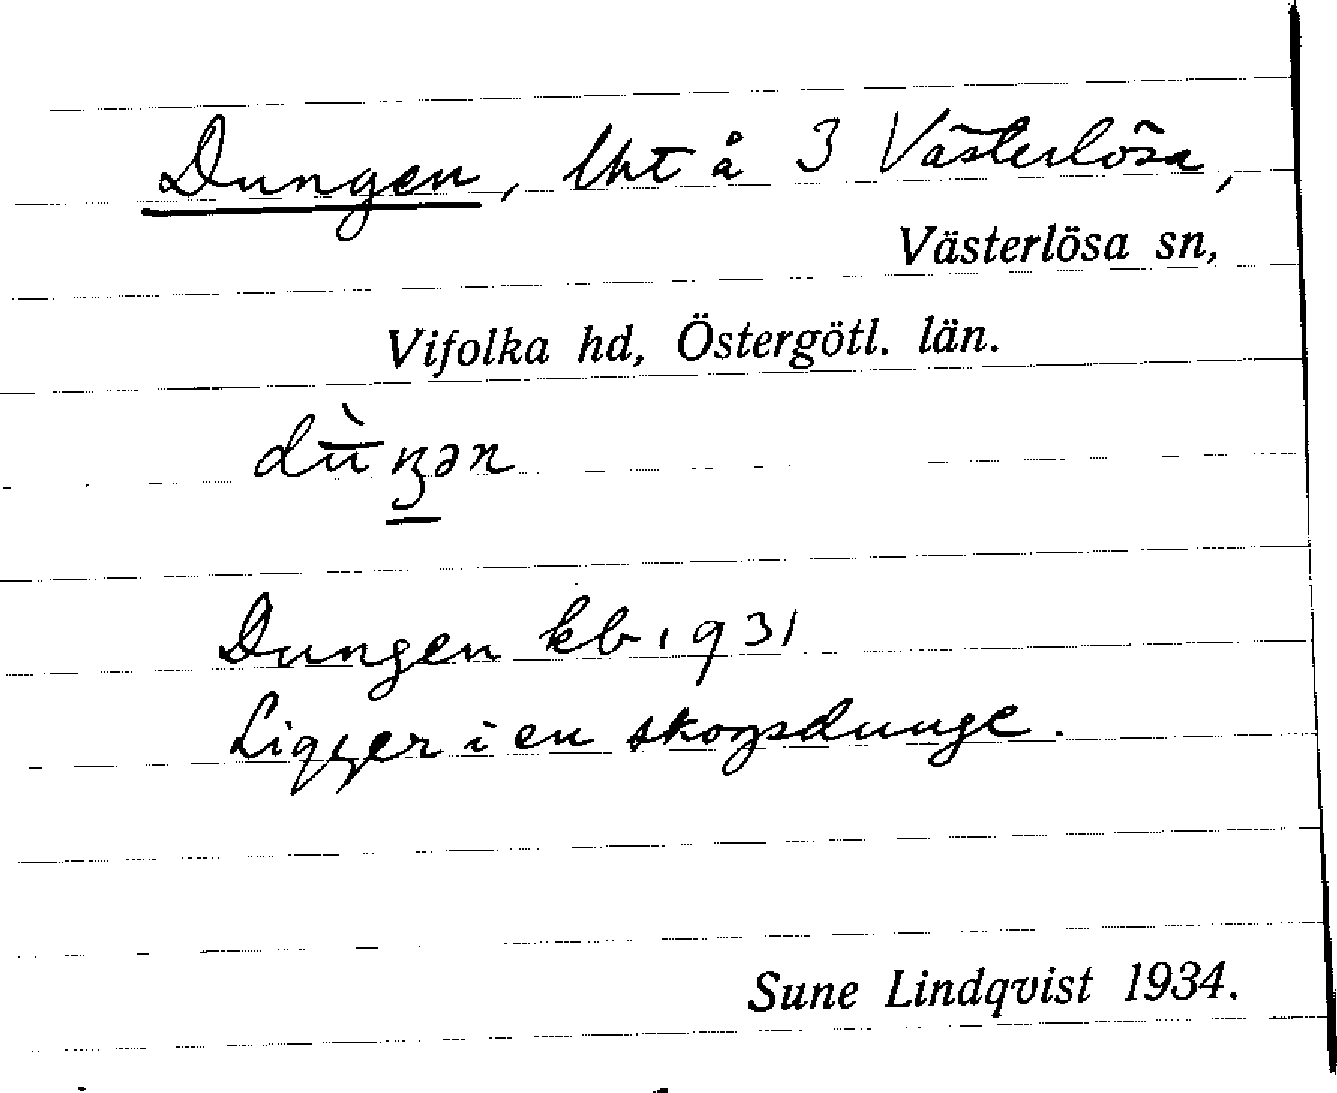 Dungen, lht å 3 Västerlösa,
Västerlösa sn,
Vifolka hd, Östergötl. län.
dùŋən
Dungen kb 1931
Ligger i en skogsdunge.
Sune Lindqvist 1934.